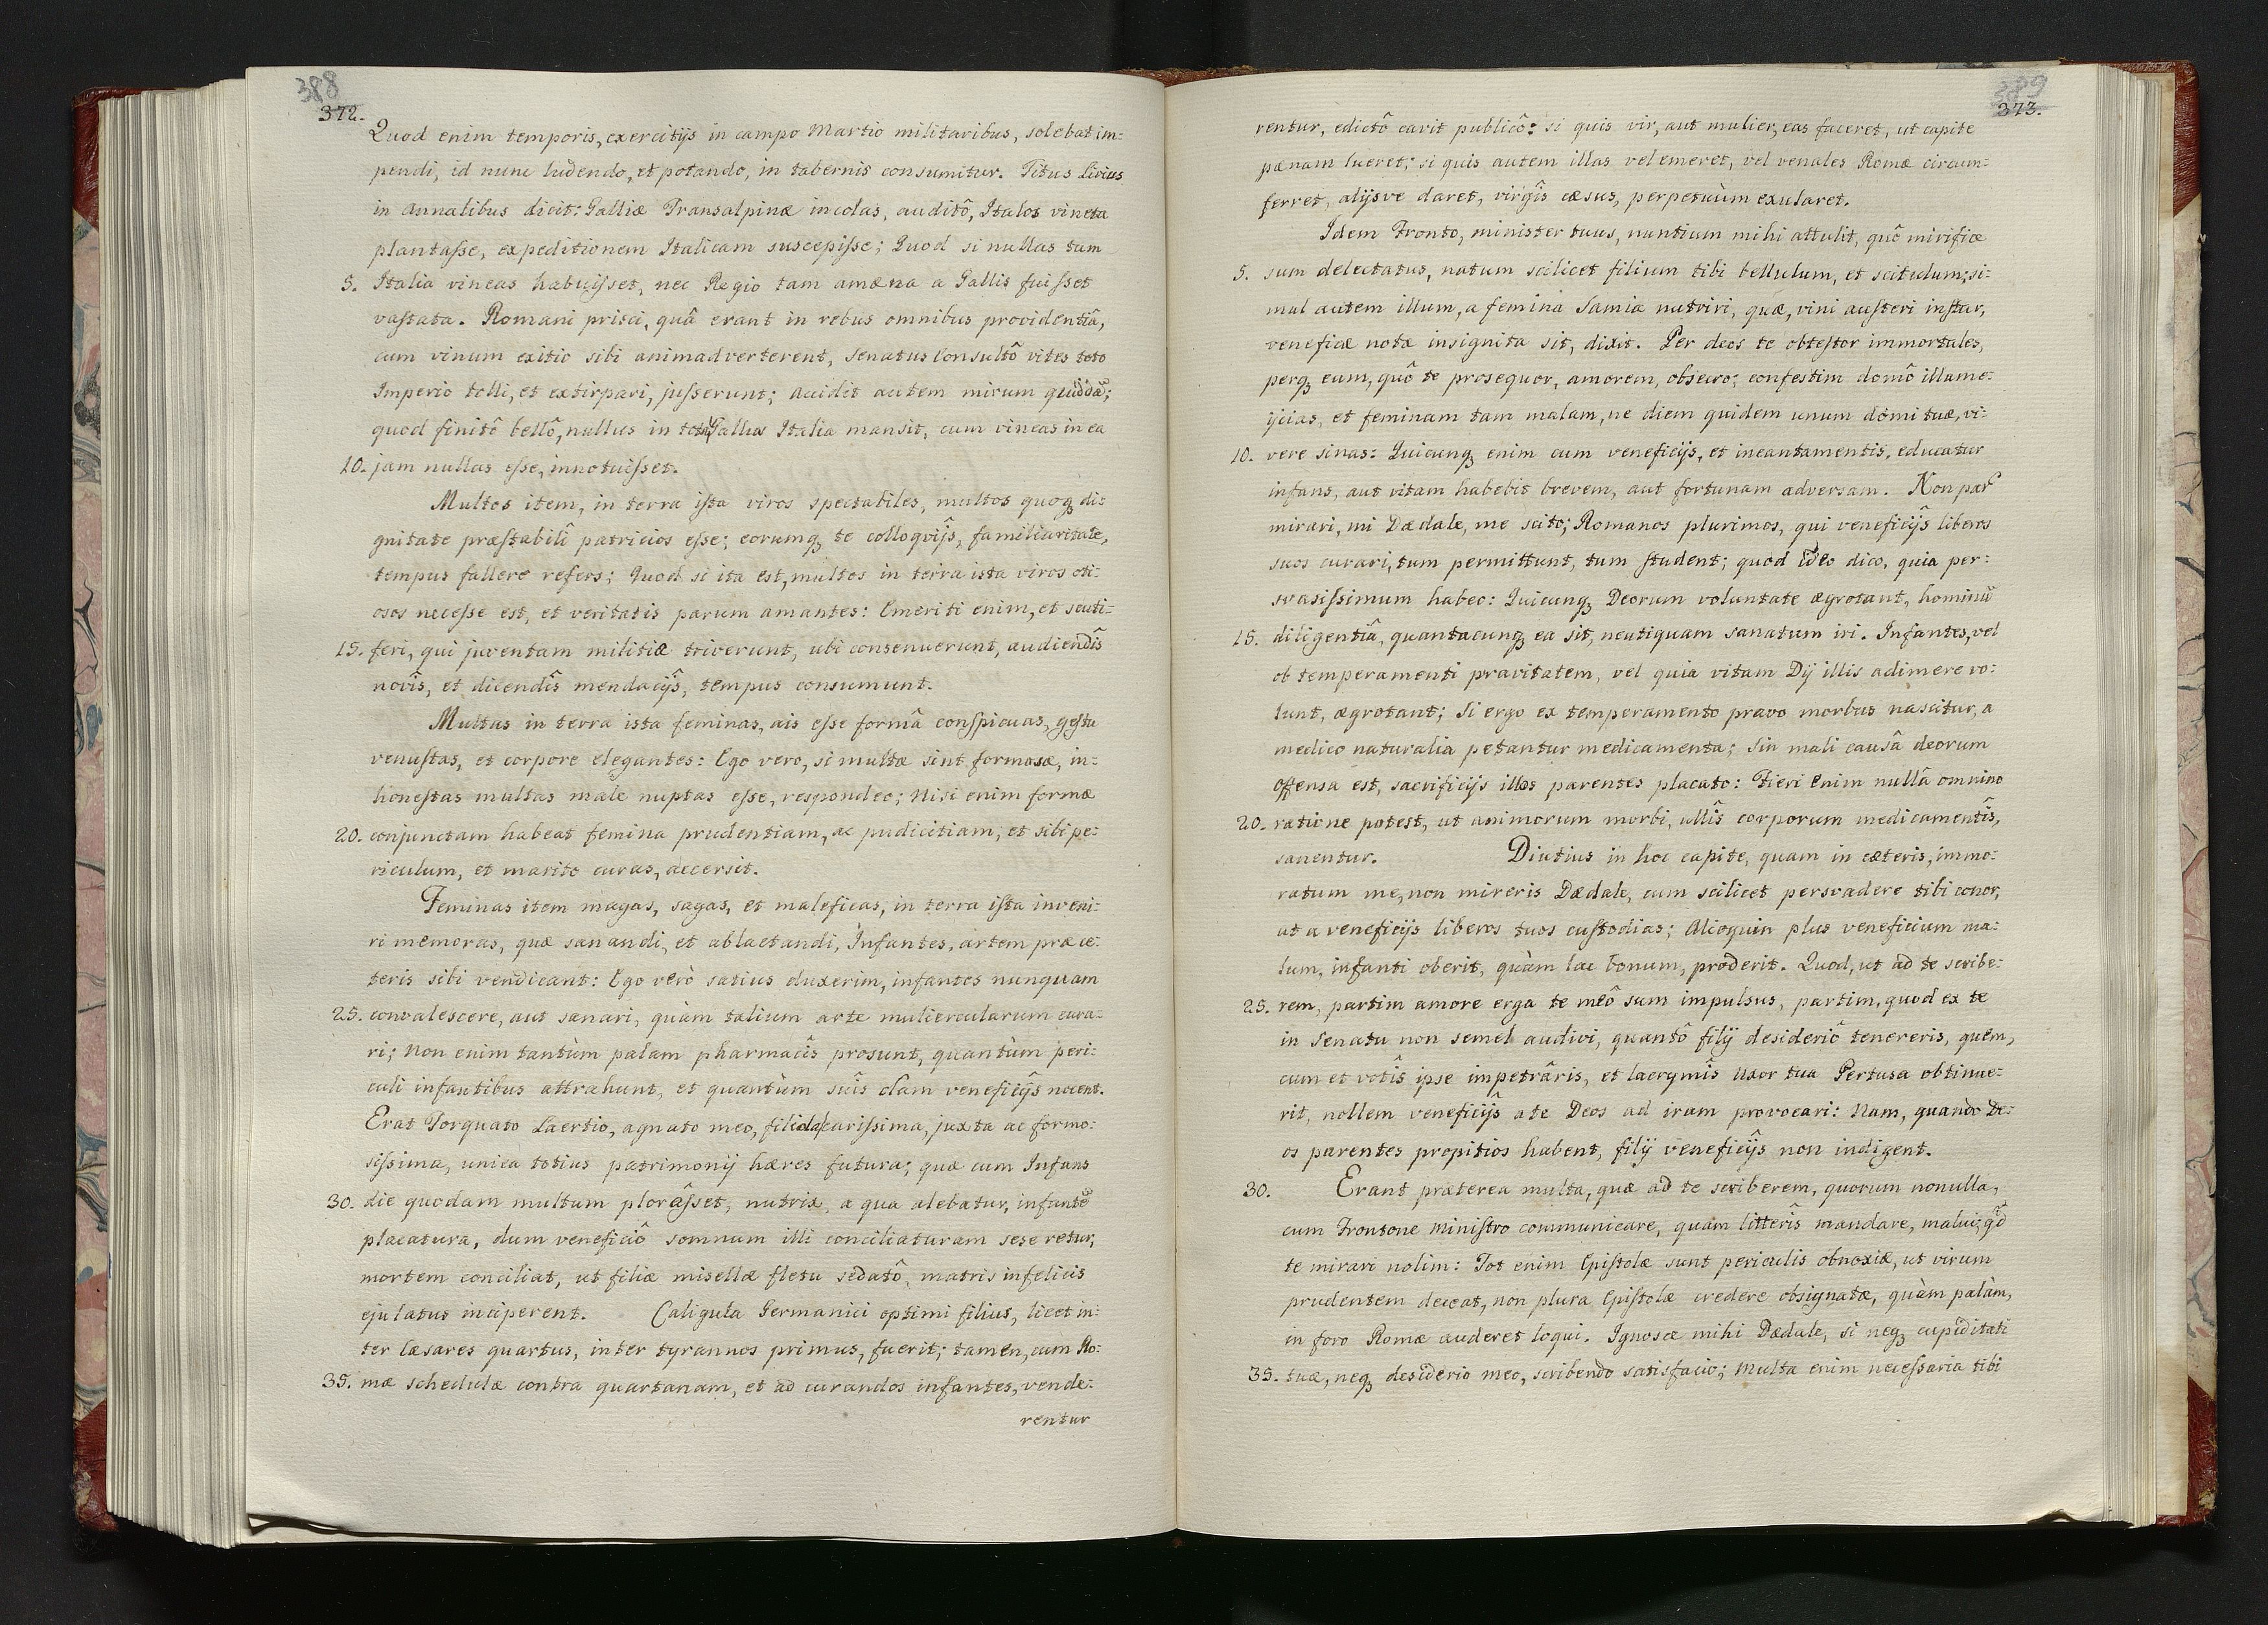 388
372.
Quod enim temporis, exercitijs in campo Martio militaribus, solebat im-
pendi, id nunc ludendo, et potando, in tabernis consumitur. Titus Livius
in Annalibus dicit: Galliæ Transalpinæ incolas, auditô, Italos vineta
plantasse, expeditionem Italicam suscepisse; Quod si nullas tum
5. Italia vineas habuisset, nec Regio tam amæna a Gallis fuisset
vastata. Romani prisci, quâ erant in rebus omnibus providentiâ,
cum vinum exitio sibi animadverterent, Senatus Consultô vites toto
Imperio tolli, et extirpari, jusserunt; accidit autem mirum quiddã;
quod finitô bellô, nullus in tota Gallus Italia mansit, cum vineas in ea
10. jam nullas esse, innotuisset.
Multos item, in terra ista viros spectabiles, multos quoqꝫ di-
gnitate præstabili patricios esse; eorumqꝫ te colloqvijs, familiaritate,
tempus fallere refers; Quod si ita est, multos in terra ista viros oti-
osos necesse est, et veritatis parum amantes: Emeriti enim, et scuti-
15. feri, qui juventam militiæ triverunt, ubi consenuerunt, audiendîs
novîs, et dicendîs mendacijs, tempus consumunt.
Multas in terra ista feminas, ais esse formâ conspicuas, gestu
venustas, et corpore elegantes: Ego vero, si multæ sint formosæ, in-
honestas multas male nuptas esse, respondeo; Nisi enim formæ
20. conjunctam habeat femina prudentiam, ac pudicitiam, et sibi pe-
riculum, et marito curas, accersit.
Feminas item magas, sagas, et maleficas, in terra ista inveni-
ri memoras, quæ sanandi, et ablactandi, Infantes, artem præ cæ-
teris sibi vendicant: Ego verò satius duxerim, infantes nunquam
25. convalescere, aut sanari, quàm talium arte muliercularum cura-
ri; Non enim tantùm palam pharmacîs prosunt, quantùm peri-
culi infantibus attrahunt, et quantùm suîs clam veneficijs nocent.
Erat Torquato Laertio, agnato meo, filiola carissima, juxta ac formo-
sissima, unica totius patrimonij hæres futura; quæ cum Infans
30. die quodam multum plorâsset, nutrix, a qua alebatur, infantẽ
placatura, dum veneficiô somnum illi conciliaturam sese retur,
mortem conciliat, ut filiæ misellæ fletu sedatô, matris infelicis
ejulatus inciperent. Caligula Germanici optimi filius, licet in-
ter Cæsares quartus, inter tyrannos primus, fuerit; tamen, cum Ro-
35. mæ schedulæ contra quartanam, et ad curandos infantes, vende-
rentur
389
373.
rentur, edictô cavit publicô: si quis vir, aut mulier, eas faceret, ut capite
pænam lueret; si quis autem illas vel emeret, vel venales Romæ circum-
ferret, alijsve daret, virgîs cæsus, perpetuùm exularet.
Idem Fronto, minister tuus, nuntium mihi attulit, quô mirifice
5. sum delectatus, natum scilicet filium tibi bellulum, et scitulum; si-
mul autem illum, a femina Samia nutriri, quæ, vini austeri instar,
veneficæ nota insignita sit, dixit. Per deos te obtestor immortales,
perqꝫ eum, quô te prosequor, amorem, obsecro; confestim domô illam e-
ijcias, et feminam tam malam, ne diem quidem unum domi tuæ, vi-
10. vere sinas: Quicunqꝫ enim cum veneficijs, et incantamentis, educatur
infans, aut vitam habebit brevem, aut fortunam adversam. Non par
mirari, mi Dædale, me scito; Romanos plurimos, qui veneficijs liberos
suos curari, tum permittunt, tum student; quod ideo dico, quia per-
svasissimum habeo: Quicunqꝫ Deorum voluntate ægrotant, hominũ
15. diligentiâ, quantacunqꝫ ea sit, neutiquam sanatum iri. Infantes, vel
ob temperamenti pravitatem, vel quia vitam Dij illis adimere vo-
lunt, ægrotant; Si ergo ex temperamento pravo morbus nascitur, a
medico naturalia petantur medicamenta; Sin mali causâ deorum
offensa est, sacrificijs illos parentes placato: Fieri enim nullâ omnino
20. ratione potest, ut animorum morbi, ullîs corporum medicamentîs,
sanentur. Diutius in hoc capite, quam in cæteris, immo-
ratum me, non mireris Dædale, cum scilicet persvadere tibi conor,
ut a veneficijs liberos tuos custodias; Alioquin plus veneficium ma-
lum, infanti oberit, quàm lac bonum, proderit. Quod, ut ad te scribe-
25. rem, partim amore erga te meô sum impulsus, partim, quod ex te
in Senatu non semel audivi, quantô filij desideriô tenereris, quem,
cum et votîs ipse impetrâris, et lacrymîs uxor tua Pertusa obtinue-
rit, nollem veneficijs a te Deos ad iram provocari: Nam, quando De-
os parentes propitios habent, filij veneficijs non indigent.
30. Erant præterea multa, quæ ad te scriberem, quorum nonulla,
cum Frontone Ministro communicare, quam litterîs mandare, malui; qd
te mirari nolim: Tot enim Epistolæ sunt periculis obnoxiæ, ut virum
prudentem deceat, non plura Epistolæ credere obsignatæ, quàm palàm,
in foro Romæ auderet loqui. Ignosce mihi Dædale, si neqꝫ cupiditati
35. tuæ, neqꝫ desiderio meo, scribendo satisfacio; Multa enim necessaria tibi